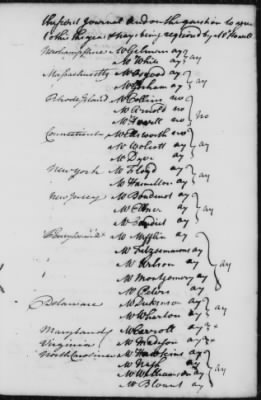 the secret Journal And on the question to agree
to this the yeas & nays being required by Mr Howell
New hampshire Mr Gilman ay } ay
Mr White ay
Massachusetts Mr Osgood ay } ay
Mr Gorham ay
Rhode Island Mr Collins no } no
Mr Arnold no
Mr Howell no
Connecticut Mr Ellsworth no } ay
Mr Wolcott ay
Mr Dyer ay
New York Mr Floyd ay } ay
Mr Hamilton ay
New Jersey Mr Boudinot ay } ay
Mr Elmer ay
Mr Condict ay
Pennsylvania Mr Mifflin ay } ay
Mr Fitzsimmons ay
Mr Wilson ay
Mr Montgomery ay
Mr Peters ay
Delaware Mr Dickinson ay } ay
Mr Wharton ay
Maryland Mr Carroll ay } *
Virginia Mr Madison ay } *
North Carolina Mr Hawkins ay } ay
Mr Nash ay
Mr Williamson ay
Mr Blount ay